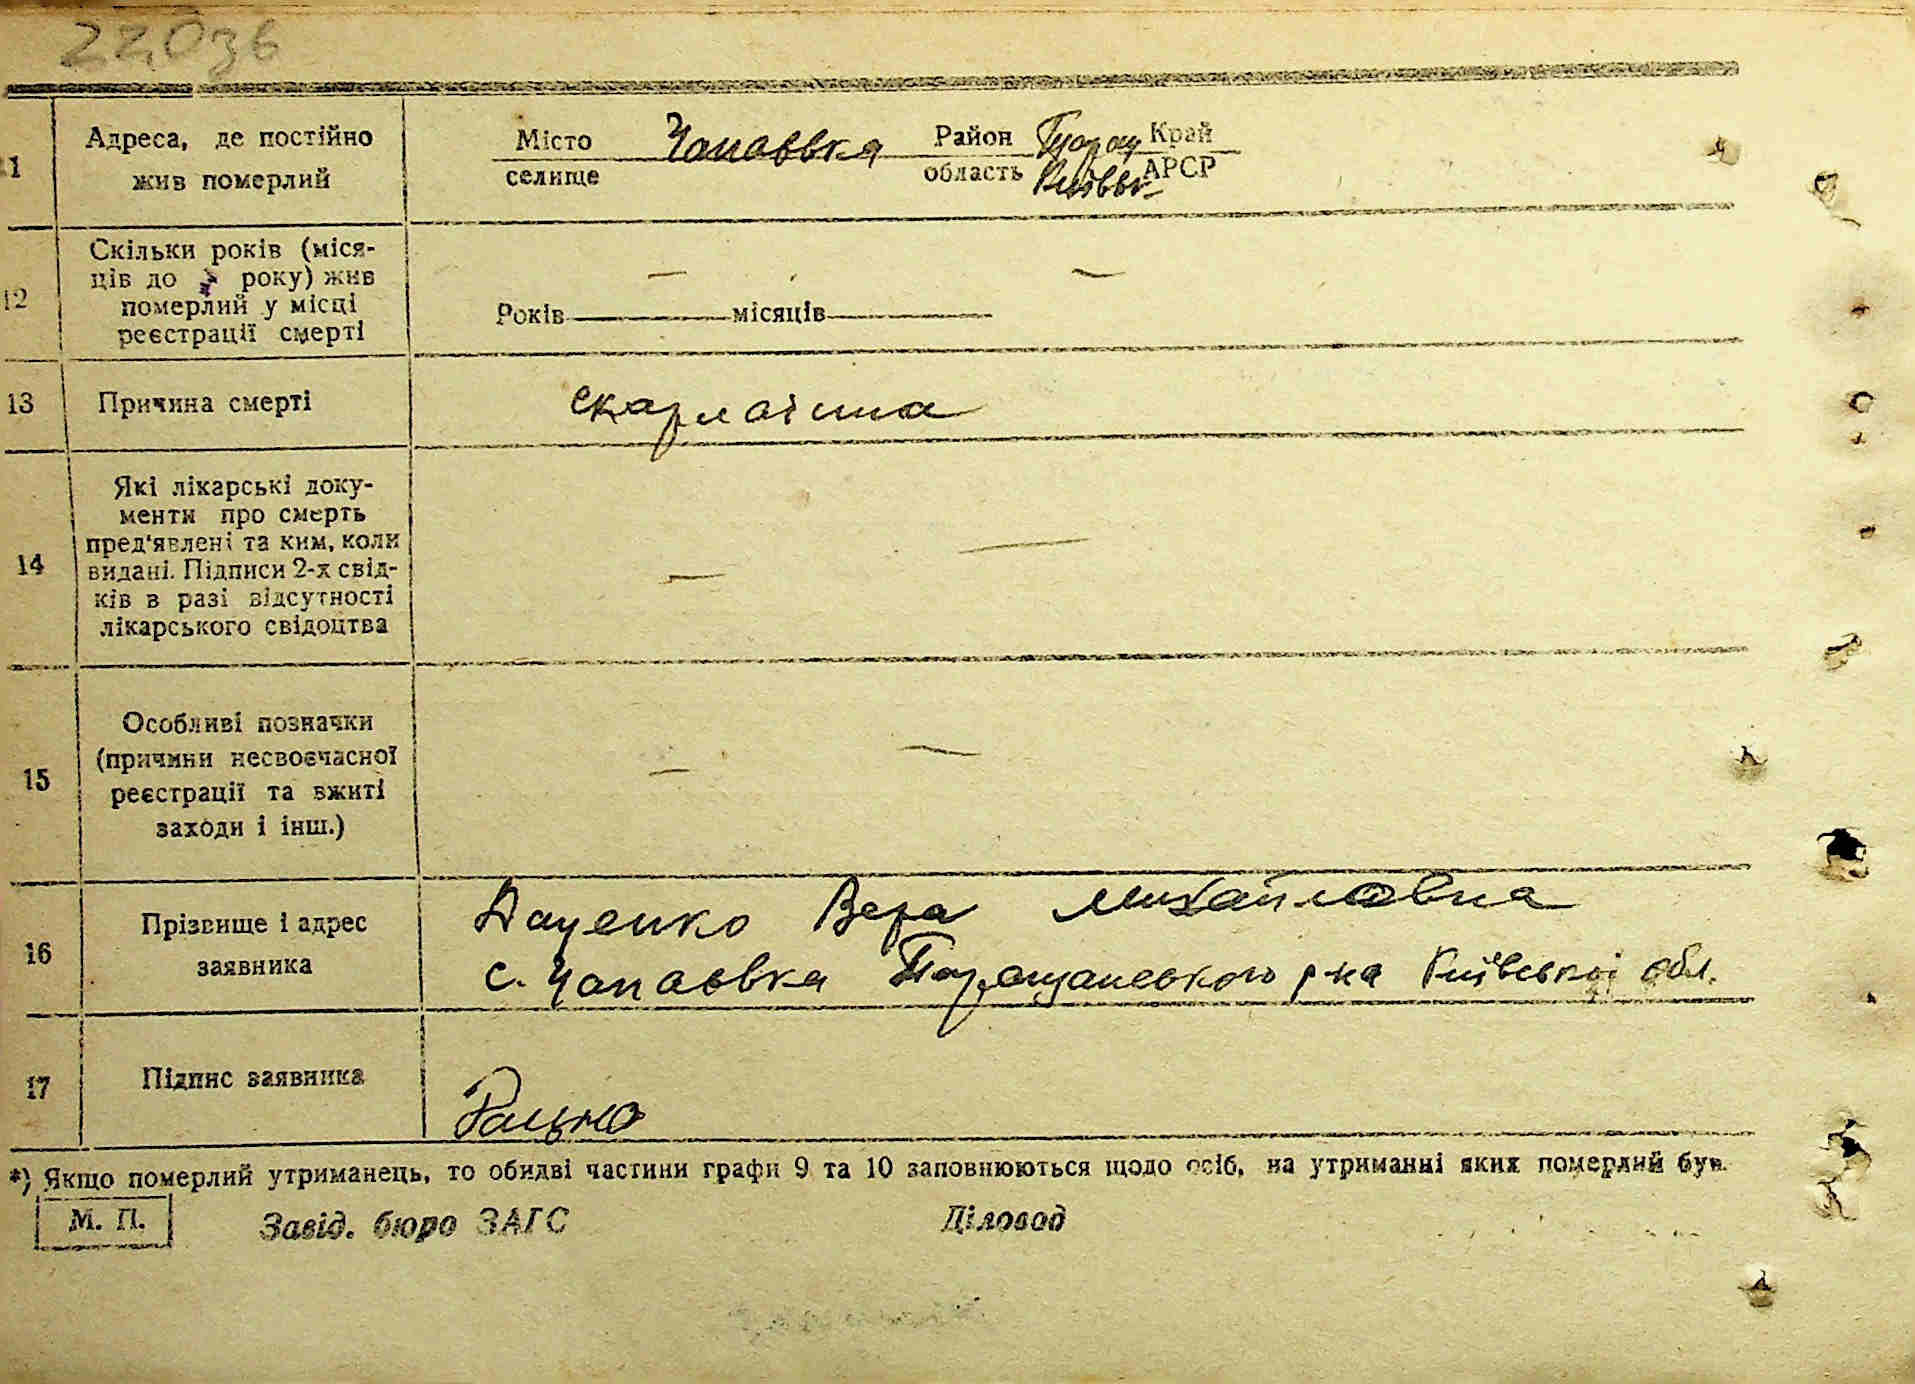 22036
11 Адреса, де постійно жив померлий
Місто селище Чапаєвка Район область Таращ Київськ Край АРСР
12 Скільки років (міся-
ців до року) жив
померлий у місці
реєстрації смерті
Років — місяців —
13 Причина смерті скарлатина
14 Які лікарські доку-
менти про смерть
пред'явлені та ким, коли
видані. Підписи 2-х свід-
ків в разі відсутності
лікарського свідоцтва
— —
15 Особливі позначки
(причини несвоєчасної
реєстрації та вжиті
заходи і інш.)
— —
16 Прізвище і адрес
заявника
Даценко Вера Михайловна
с. Чапаєвка Таращанського р-на Київської обл.
17 Підпис заявника
*) Якщо померлий утриманець, то обидві частини графи 9 та 10 заповнюються щодо осіб, на утриманні яких померлий був.
М. П. Завід. бюро ЗАГС Діловод